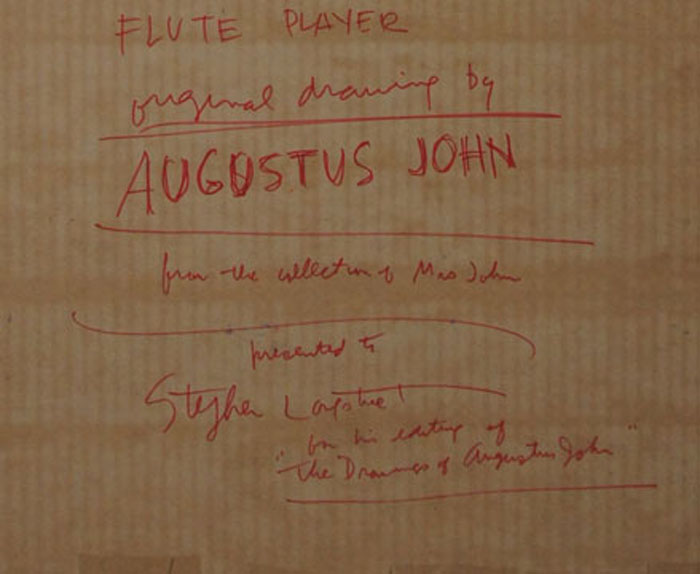 FLUTE PLAYER
original drawing by
AUGUSTUS JOHN
from the collection of Mrs John
presented to
Stephen Longstreet
"for his editing of
the Drawings of Augustus John"